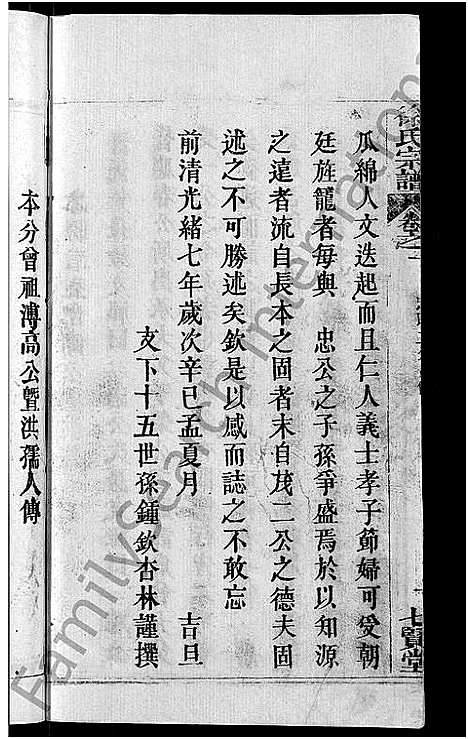 徐氏宗譜 卷之一
七賢堂
瓜綿人文迭起而且仁人義士孝子節婦可受朝
廷旌寵者每與 忠公之子孫爭盛焉於以知源
之遠者流自長本之固者末自茂二公之德夫固
述之不可勝述矣欽是以感而誌之不敢忘
前清光緒七年歲次辛巳孟夏月 吉旦
支下十五世孫鍾欽杏林謹撰
本分曾祖溥高公暨洪孺人傳
FamilySearch International